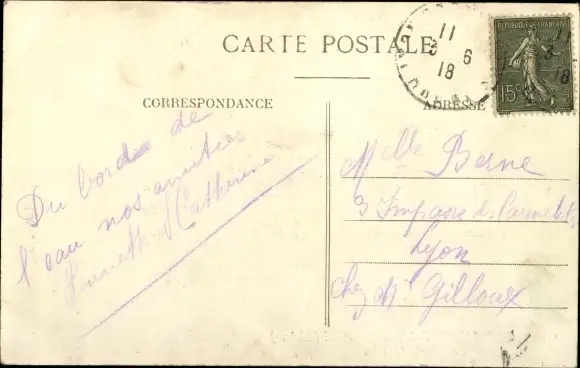 CARTE POSTALE
RÉPUBLIQUE FRANÇAISE
15c
11
6
18
CORRESPONDANCE
ADRESSE
Du bord de
l'eau nos amitiés
Catherine
Melle Berne
3 Impasse des Carmélites
Lyon
Chez Mr Gilloux